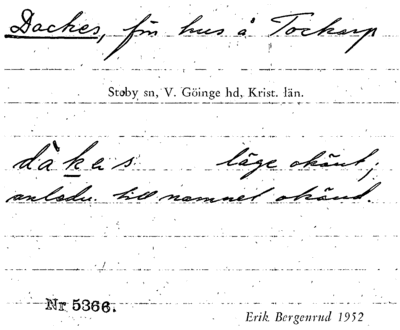 Dackes, för hus å Tockarp
Stoby sn, V. Göinge hd, Krist. län.
dàkes läge okänt;
anledn. till namnet okänd.
Nr 5366.
Erik Bergenrud 1952